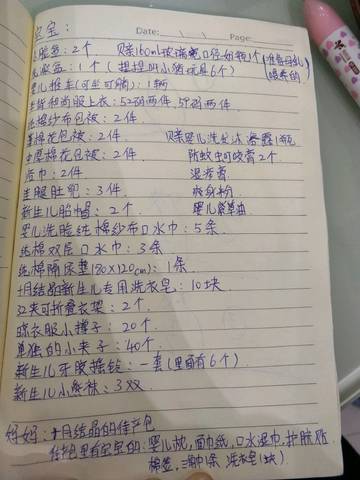 Date: Page:
宝宝:
脸盆: 2个 赠160ml玻璃宽口径奶瓶1个(准备母乳喂养的)
盆: 1个 (捏捏叫小猪玩具6个)
婴儿推车(可坐可躺): 1辆
和尚服上衣: 52码两件, 59码两件
棉纱布包被: 2件
棉花包被: 2件 赠婴儿洗发沐浴露1瓶
棉花包被: 2件 防蚊虫叮咬膏2个
浴巾: 2件 湿疹膏
连腿肚兜: 3件 爽身粉
新生儿胎帽: 2个 婴儿紫草油
婴儿洗脸纯棉纱布口水巾: 5条
纯棉双层口水巾: 3条
纯棉隔尿垫(80×120cm): 1条
十月结晶新生儿专用洗衣皂: 10块
32夹可折叠衣架: 2个
晾衣服小撑子: 20个
单独的小夹子: 40个
新生儿牙胶摇铃: 一套(里面有6个)
新生儿小熊袜: 3双
妈妈: 十月结晶的待产包
待产包里有宝宝的: 婴儿枕, 面巾纸, 口水湿巾, 护脐贴
棉签, 三角巾1条 洗衣皂1块)